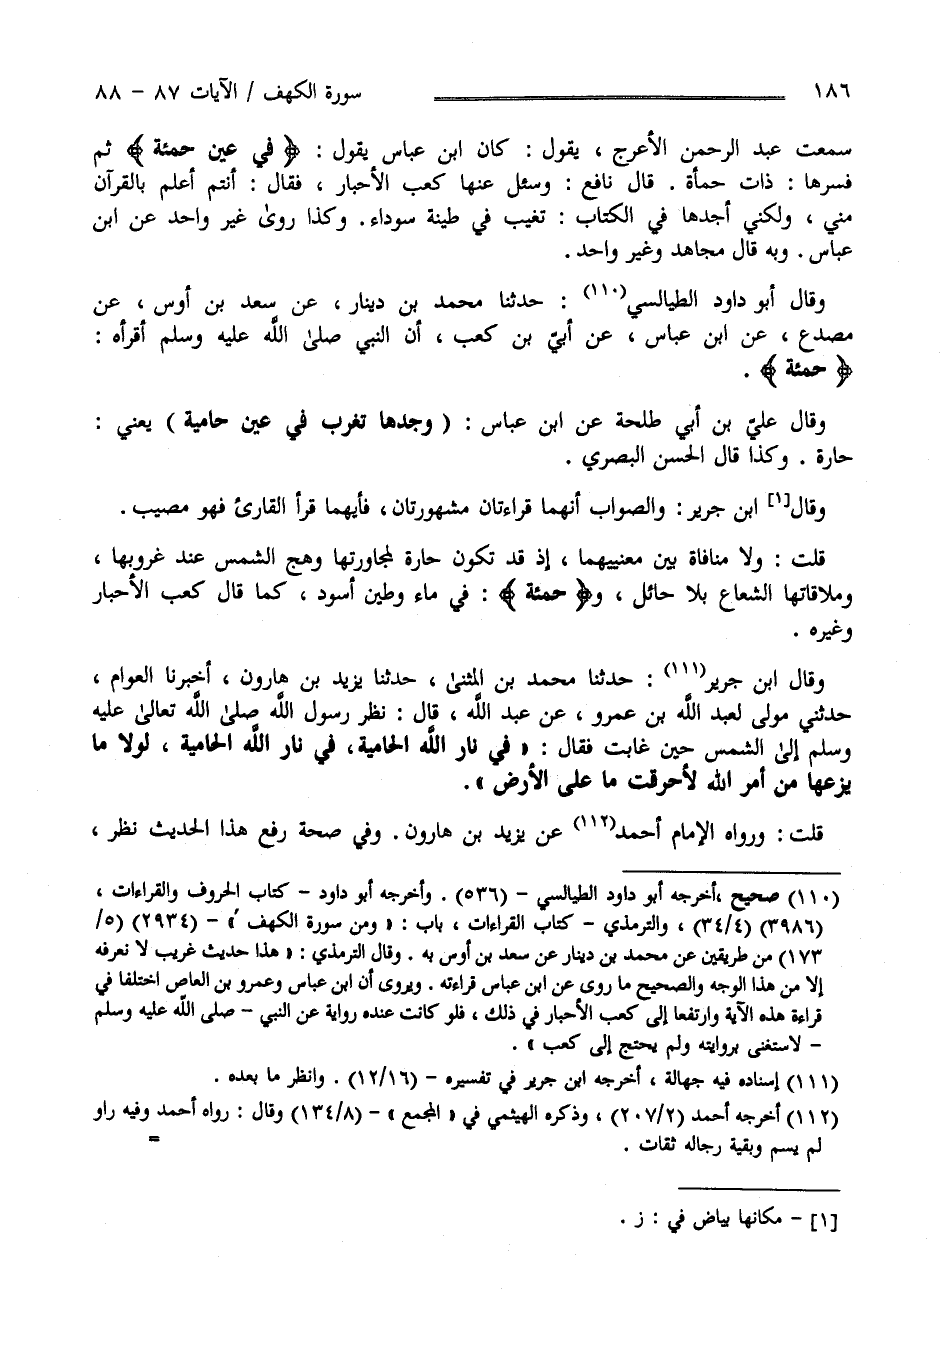 ١٨٦ سورة الكهف / الآيات ٨٧ – ٨٨
سمعت عبد الرحمن الأعرج ، يقول : كان ابن عباس يقول : ﴿ في عين حمئة ﴾ ثم
فسرها : ذات حمأة . قال نافع : وسئل عنها كعب الأحبار ، فقال : أنتم أعلم بالقرآن
مني ، ولكني أجدها في الكتاب : تغيب في طينة سوداء. وكذا روىٰ غير واحد عن ابن
عباس . وبه قال مجاهد وغير واحد.
وقال أبو داود الطيالسي(١١٠) : حدثنا محمد بن دينار ، عن سعد بن أوس ، عن
مصدع ، عن ابن عباس ، عن أبيّ بن كعب ، أن النبي صلىٰ اللَّه عليه وسلم أقرأه :
﴿ حمئة ﴾ .
وقال عليّ بن أبي طلحة عن ابن عباس : ( وجدها تغرب في عين حامية ) يعني :
حارة . وكذا قال الحسن البصري .
وقال[١] ابن جرير : والصواب أنهما قراءتان مشهورتان، فأيهما قرأ القارئ فهو مصيب .
قلت : ولا منافاة بين معنييهما ، إذ قد تكون حارة لمجاورتها وهج الشمس عند غروبها ،
وملاقاتها الشعاع بلا حائل ، و﴿ حمئة ﴾ : في ماء وطين أسود ، كما قال كعب الأحبار
وغيره .
وقال ابن جرير(١١١) : حدثنا محمد بن المثنىٰ ، حدثنا يزيد بن هارون ، أخبرنا العوام ،
حدثني مولى لعبد اللَّه بن عمرو ، عن عبد اللَّه ، قال : نظر رسول اللَّه صلىٰ اللَّه تعالىٰ عليه
وسلم إلىٰ الشمس حين غابت فقال : « في نار اللَّه الحامية، في نار اللَّه الحامية ، لولا ما
يزعها من أمر الله لأحرقت ما على الأرض » .
قلت : ورواه الإمام أحمد(١١٢) عن يزيد بن هارون. وفي صحة رفع هذا الحديث نظر ،
(١١٠) صحيح ،أخرجه أبو داود الطيالسي – (٥٣٦) . وأخرجه أبو داود – كتاب الحروف والقراءات ،
(٣٩٨٦) (٣٤/٤) ، والترمذي – كتاب القراءات ، باب : « ومن سورة الكهف » – (٢٩٣٤) (٥/
١٧٣) من طريقين عن محمد بن دينار عن سعد بن أوس به . وقال الترمذي : « هذا حديث غريب لا نعرفه
إلا من هذا الوجه والصحيح ما روى عن ابن عباس قراءته . ويروى أن ابن عباس وعمرو بن العاص اختلفا في
قراءة هذه الآية وارتفعا إلى كعب الأحبار في ذلك ، فلو كانت عنده رواية عن النبي – صلى اللَّه عليه وسلم
– لاستغنى بروايته ولم يحتج إلى كعب » .
(١١١) إسناده فيه جهالة ، أخرجه ابن جرير في تفسيره – (١٢/١٦) . وانظر ما بعده .
(١١٢) أخرجه أحمد (٢٠٧/٢) ، وذكره الهيثمي في « المجمع » – (١٣٤/٨) وقال : رواه أحمد وفيه راو
لم يسم وبقية رجاله ثقات . =
[١] – مكانها بياض في : ز .